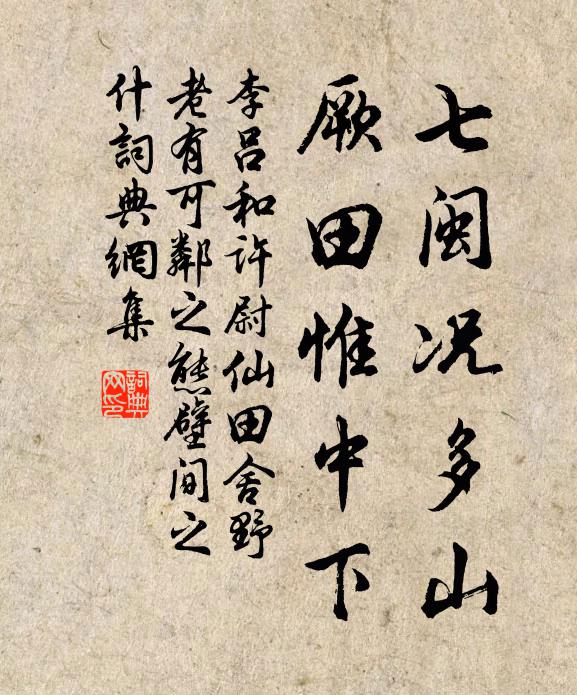 七闽况多山
厥田惟中下
李吕和许尉仙田舍野
老有可鄰之態壁间之
什詞典網集
詞典
网印